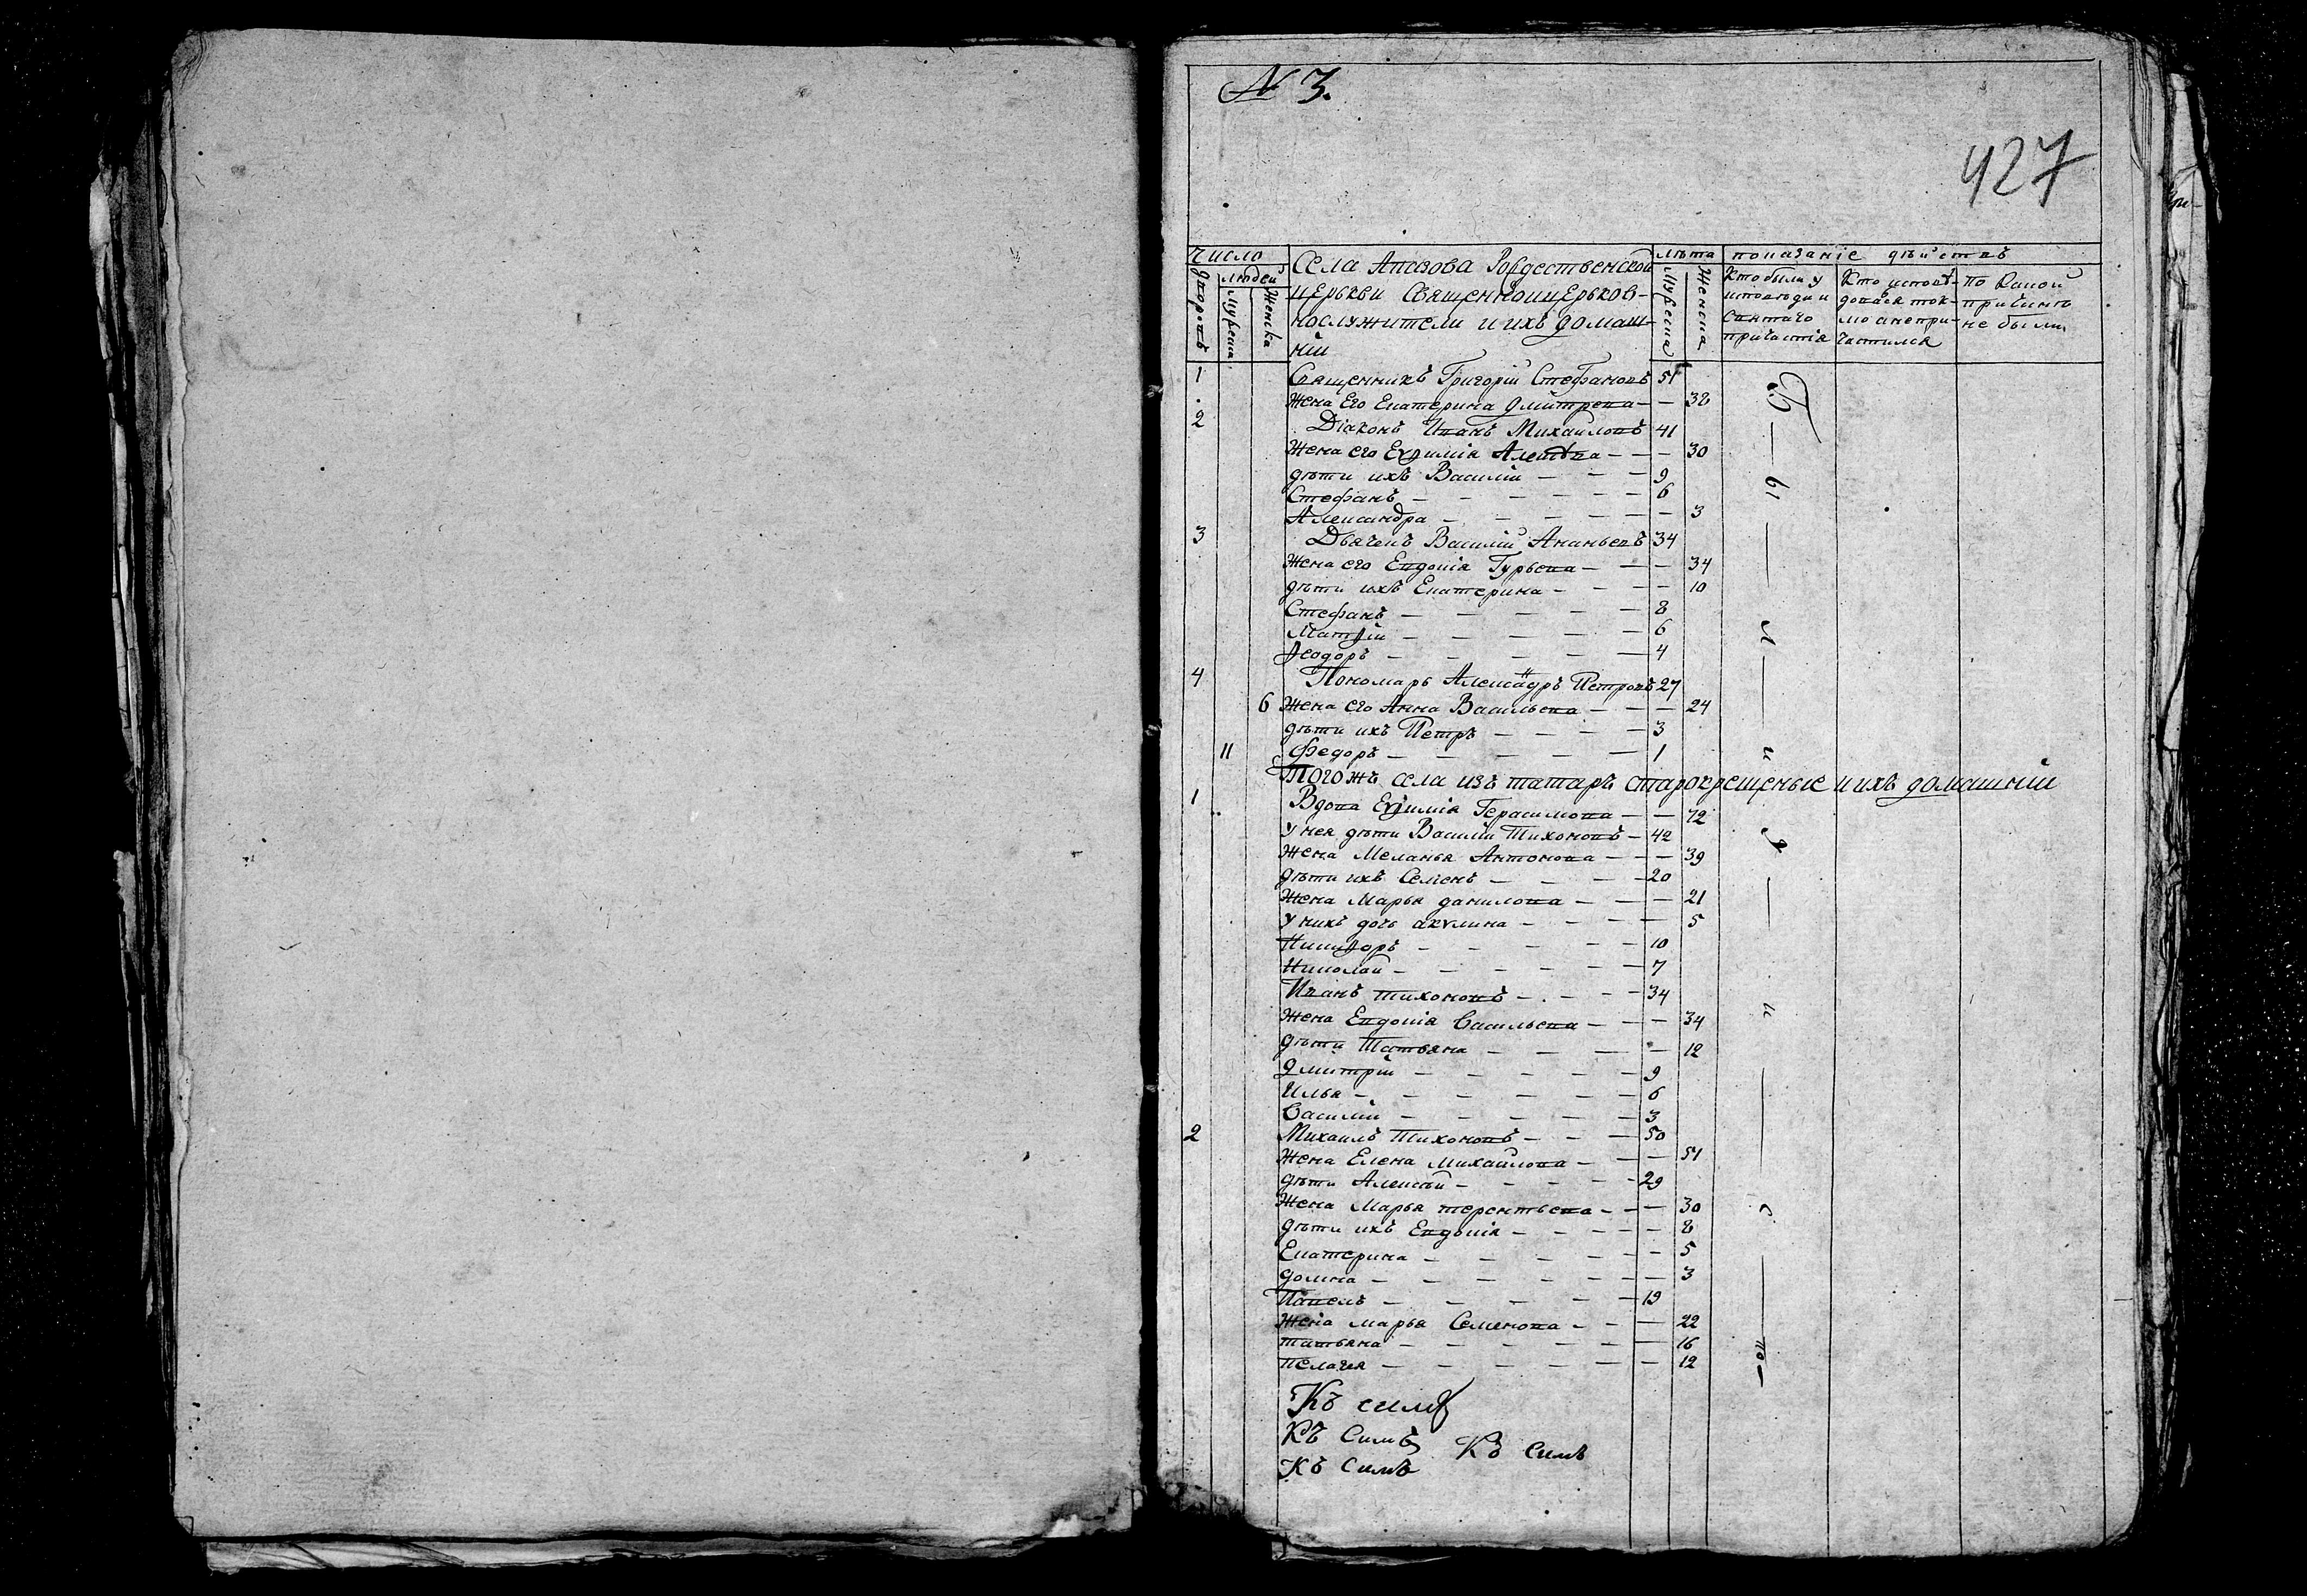 № 3.
427
Число
людей
дворовъ
Мужеска
Женска
Села Апазова Рождественской
церкви священноицерьков-
нослужители и ихъ домаш-
нiи
лѣта
Мужеска
Женска
показанiе дѣйствъ
Кто были у
исповѣди и
святаго
причастiя
Кто исповѣ-
дался ток-
мо а непри-
частился
По какой
причинѣ
не были
1 Священникъ Григорiй Стефановъ 51
Жена Его Екатерина Дмитрева — — 38
2 Дiаконъ Иванъ Михайловъ 41
Жена его Евѳимiя Алеѯѣва — — — 30
дѣти ихъ Василiй — — — 9
Стефанъ — — — — — — 6
Александра — — — — — — 3
3 Дьячекъ Василiй Ананьевъ 34
Жена его Евдокiя Гурьева — — — 34
дѣти ихъ Екатерина — — — — 10
Стефанъ — — — — — 8
Матѳiй — — — — — 6
Ѳеодоръ — — — — — 4
4 Пономарь Александръ Петровъ 27
6 Жена его Анна Васильева — — — 24
дѣти ихъ Петръ — — — — 3
11 Федоръ — — — — — 1
Тогожъ села изъ татаръ старокрещеные и ихъ домашнiи
1 Вдова Евѳимiя Герасимова — — 72
У нея дѣти Василiй Тихоновъ — 42
Жена Меланья Антонова — — — 39
дѣти ихъ Семенъ — — — — 20
Жена Марья данилова — — — 21
у нихъ дочь акулина — — — — 5
Никифоръ — — — — — 10
Николай — — — — — — 7
Иванъ тихоновъ — — — — 34
Жена Евдокiя Васильева — — — 34
дѣти Татьяна — — — — — 12
Дмитрiй — — — — — 9
Илья — — — — — — 6
Василiй — — — — — 3
2 Михаилъ Тихоновъ — — — 50
Жена Елена михайлова — — — 51
дѣти Алексѣй — — — — — 29
Жена Марья терентьева — — — 30
дѣти ихъ Евдокiя — — — — — 8
Екатерина — — — — — — 5
домна — — — — — — — 3
Павелъ — — — — — 19
Жена марья Семенова — — — 22
татьяна — — — — — — 16
пелагея — — — — — — — 12
Б — ы — л — и — у — и — с — по —
Къ симъ
Къ Симъ Къ Симъ
Къ Симъ